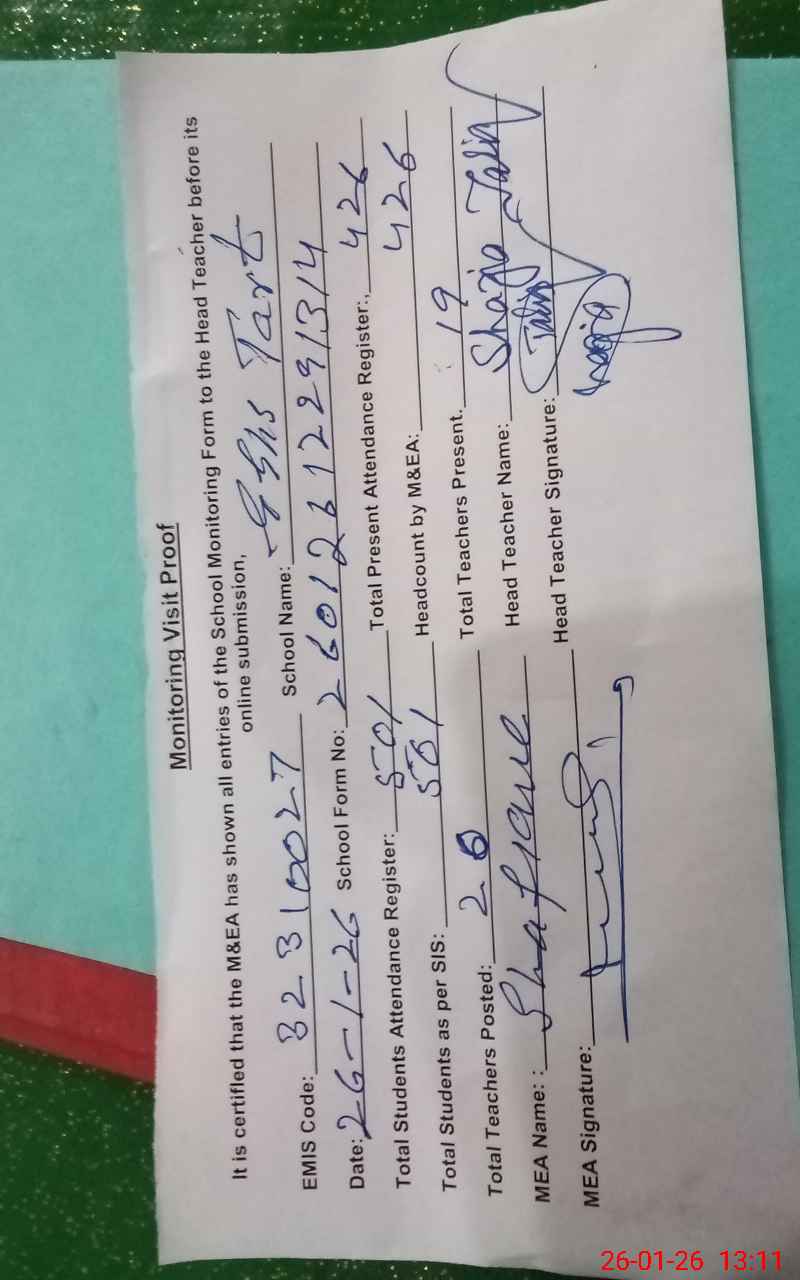 Monitoring Visit Proof
It is certified that the M&EA has shown all entries of the School Monitoring Form to the Head Teacher before its
online submission,
EMIS Code: 32310027 School Name: GGHS Tart
Date: 26-1-26 School Form No: 260126122913/4
Total Students Attendance Register: 501 Total Present Attendance Register:, 426
Total Students as per SIS: 501 Headcount by M&EA: 426
Total Teachers Posted: 20 Total Teachers Present. 19
MEA Name: : Shafique Head Teacher Name: Shazia Tariq
MEA Signature: Head Teacher Signature: Shazia
26-01-26 13:11